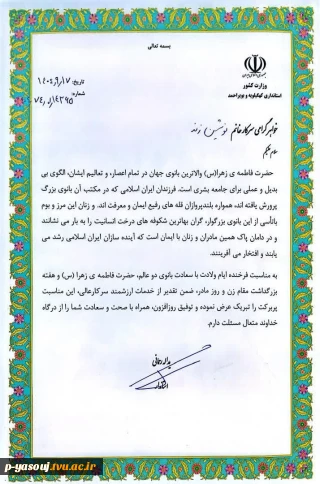 بسمه تعالی
وزارت کشور
استانداری کهگیلویه و بویراحمد
تاریخ: ۱۴۰۴/۹/۱۷
شماره:
خواهر گرامی سرکار خانم
سلام علیکم
حضرت فاطمه ی زهرا(س) والاترین بانوی جهان در تمام اعصار، و تعالیم ایشان، الگوی بی
بدیل و عملی برای جامعه بشری است. فرزندان ایران اسلامی که در مکتب آن بانوی بزرگ
پرورش یافته اند، همواره بلندپروازان قله های رفیع ایمان و معرفت اند. و زنان این مرز و بوم
باتأسی از این بانوی بزرگوار، گران بهاترین شکوفه های درخت انسانیت را به بار می نشانند
و در دامان پاک همین مادران و زنان با ایمان است که آینده سازان ایران اسلامی رشد می
یابند و افتخار می آفرینند.
به مناسبت فرخنده ایام ولادت با سعادت بانوی دو عالم، حضرت فاطمه ی زهرا (س) و هفته
بزرگداشت مقام زن و روز مادر، ضمن تقدیر از خدمات ارزشمند سرکارعالی، این مناسبت
پربرکت را تبریک عرض نموده و توفیق روزافزون، همراه با صحت و سعادت شما را از درگاه
خداوند متعال مسئلت دارم.
یداله رحمانی
استاندار
p-yasouj.tvu.ac.ir